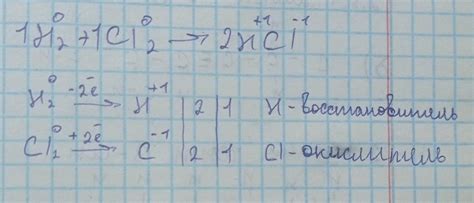 1H₂⁰ + 1Cl₂⁰ → 2H⁺¹Cl⁻¹
H₂⁰ -2ē → H⁺¹ | 2 | 1 H - восстановитель
Cl₂⁰ +2ē → C⁻¹ | 2 | 1 Cl - окислитель